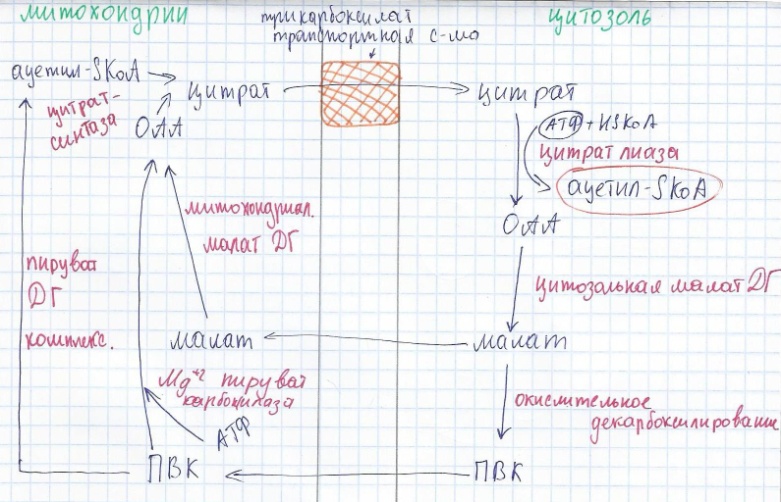 митохондрии
трикарбоксилат
транспортная с-ма
цитозоль
ацетил-SKoA
цитрат
цитрат
цитрат-
синтаза
ОАА
АТФ + HSKoA
цитрат лиаза
ацетил-SKoA
ОАА
митохондриал.
малат ДГ
пируват
ДГ
комплекс.
цитозальная малат ДГ
малат
малат
Mg+2 пируват
карбоксилаза
АТФ
окислительное
декарбоксилирование
ПВК
ПВК